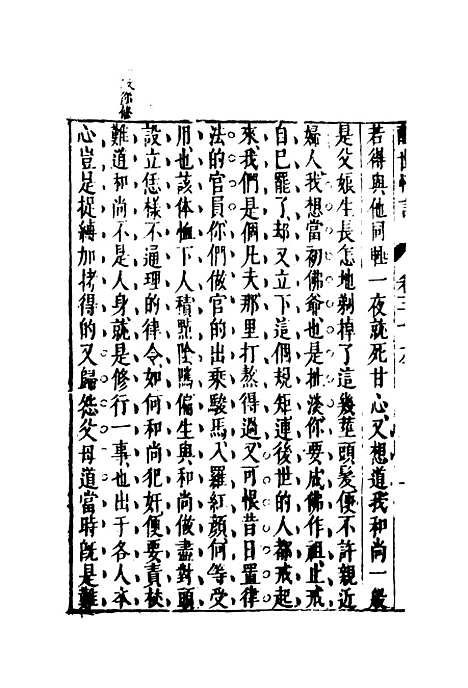 醒世恆言　卷三十九
若得與他同牀一夜就死甘心又想道我和尚一般
是父娘生長怎地剃掉了這幾莖頭髮便不許親近
婦人我想當初佛爺也是扯淡你要成佛作祖止戒
自己罷了却又立下這個規矩連後世的人都戒起
來我們是個凡夫那里打熬得過又可恨昔日置律
法的官員你們做官的出乘駿馬入羅紅顏何等受
用也該体恤下人積點陰騭偏生與和尚做盡對頭
設立恁樣不通理的律令如何和尚犯奸便要責杖
難道和尚不是人身就是修行一事也出于各人本
心豈是捉縛加拷得的又歸怨父母道當時既是難